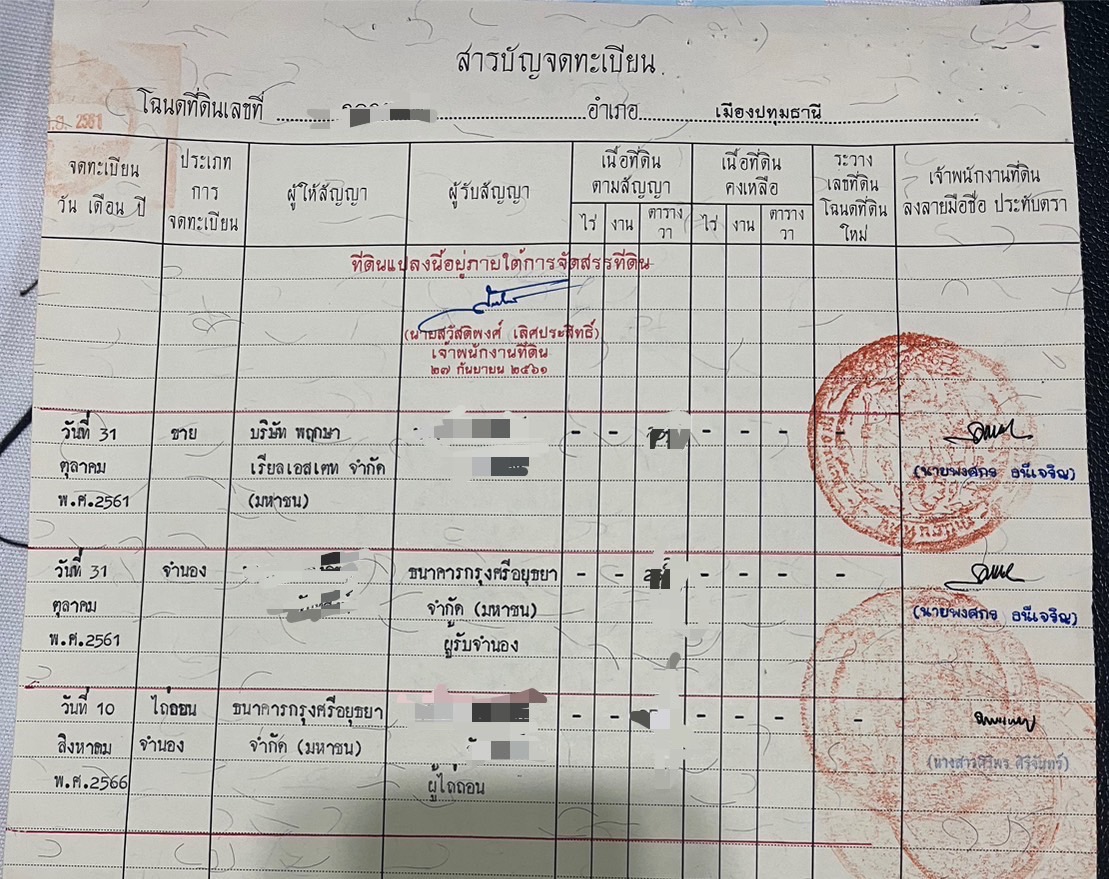 สารบัญจดทะเบียน
โฉนดที่ดินเลขที่ อำเภอ เมืองปทุมธานี
2561
จดทะเบียน วัน เดือน ปี
ประเภท การ จดทะเบียน
ผู้ให้สัญญา
ผู้รับสัญญา
เนื้อที่ดิน ตามสัญญา
ไร่ งาน ตาราง วา
เนื้อที่ดิน คงเหลือ
ไร่ งาน ตาราง วา
ระวาง เลขที่ดิน โฉนดที่ดิน ใหม่
เจ้าพนักงานที่ดิน ลงลายมือชื่อ ประทับตรา
ที่ดินแปลงนี้อยู่ภายใต้การจัดสรรที่ดิน
(นายสวัสดิพงศ์ เลิศประสิทธิ์)
เจ้าพนักงานที่ดิน
๒๗ กันยายน ๒๕๖๑
วันที่ 31 ขาย บริษัท พฤกษา - - - - - -
ตุลาคม เรียลเอสเตท จำกัด (นายพงศกร ธนีเจริญ)
พ.ศ.2561 (มหาชน)
วันที่ 31 จำนอง ธนาคารกรุงศรีอยุธยา - - - - - -
ตุลาคม จำกัด (มหาชน) (นายพงศกร ธนีเจริญ)
พ.ศ.2561 ผู้รับจำนอง
วันที่ 10 ไถ่ถอน ธนาคารกรุงศรีอยุธยา - - - - - -
สิงหาคม จำนอง จำกัด (มหาชน) (นางสาวศิริพร ศิริจันทร์)
พ.ศ.2566 ผู้ไถ่ถอน